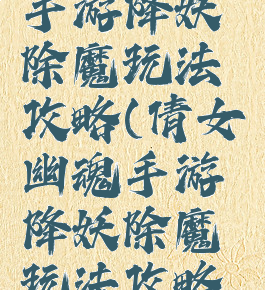 手游降妖
除魔玩法
攻略(倩女
幽魂手游
降妖除魔
玩法攻略